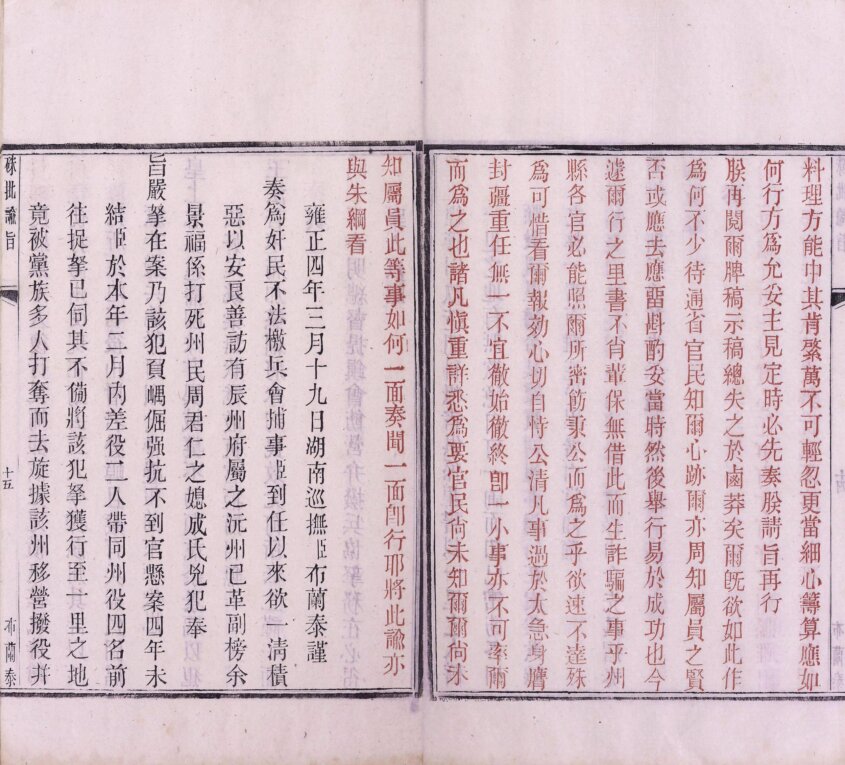 料理方能中其肯綮萬不可輕忽更當細心籌算應如
何行方為允妥主見定時必先奏朕請旨再行
朕再閱爾牌稿示稿總失之於鹵莽矣爾旣欲如此作
為何不少待通省官民知爾心跡爾亦周知屬員之賢
否或應去應畱斟酌妥當時然後舉行易於成功也今
遽爾行之里書不肖輩保無借此而生詐騙之事乎州
縣各官必能照爾所密飭秉公而為之乎欲速不達殊
為可惜看爾報効心切自恃公清凡事過於太急身膺
封疆重任無一不宜徹始徹終卽一小事亦不可率爾
而為之也諸凡愼重詳悉為要官民尚未知爾爾尚未
知屬員此等事如何一面奏聞一面卽行耶將此諭亦
與朱綱看
雍正四年三月十九日湖南巡撫臣布蘭泰謹
奏為奸民不法檄兵會捕事臣到任以來欲一清積
惡以安良善訪有辰州府屬之沅州已革副榜余
景福係打死州民周君仁之媳成氏兇犯奉
旨嚴拏在案乃該犯負嵎倔强抗不到官懸案四年未
結臣於本年二月內差役二人帶同州役四名前
往捉拏已伺其不備將該犯拏獲行至一里之地
竟被黨族多人打奪而去旋據該州移營撥役幷
硃批諭旨
十五
布蘭泰